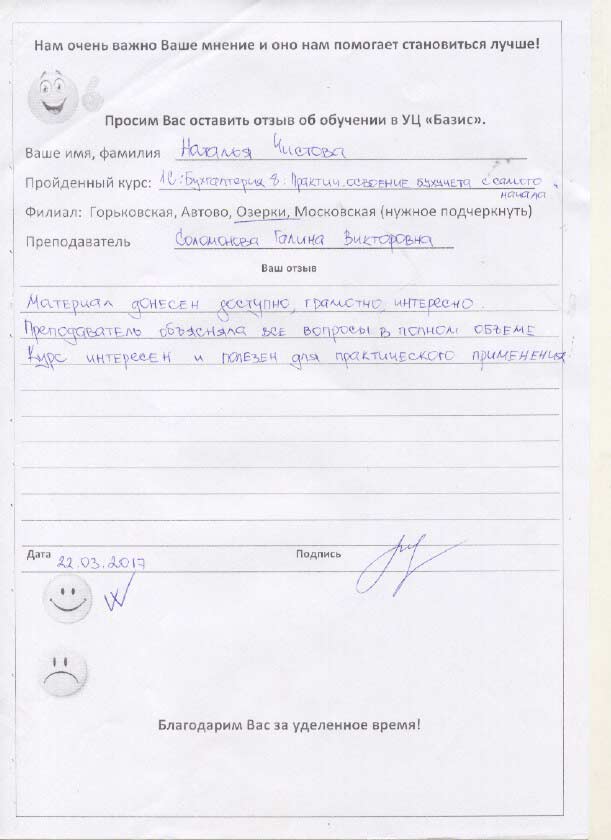 Нам очень важно Ваше мнение и оно нам помогает становиться лучше!
Просим Вас оставить отзыв об обучении в УЦ «Базис».
Ваше имя, фамилия Наталья Чистова
Пройденный курс: 1С:Бухгалтерия 8: Практич. освоение бухучета с самого
начала
Филиал: Горьковская, Автово, Озерки, Московская (нужное подчеркнуть)
Преподаватель Соломонова Галина Викторовна
Ваш отзыв
Материал донесен доступно, грамотно, интересно.
Преподаватель объясняла все вопросы в полном объеме
Курс интересен и полезен для практического применения
Дата 22.03.2017 Подпись
Благодарим Вас за уделенное время!